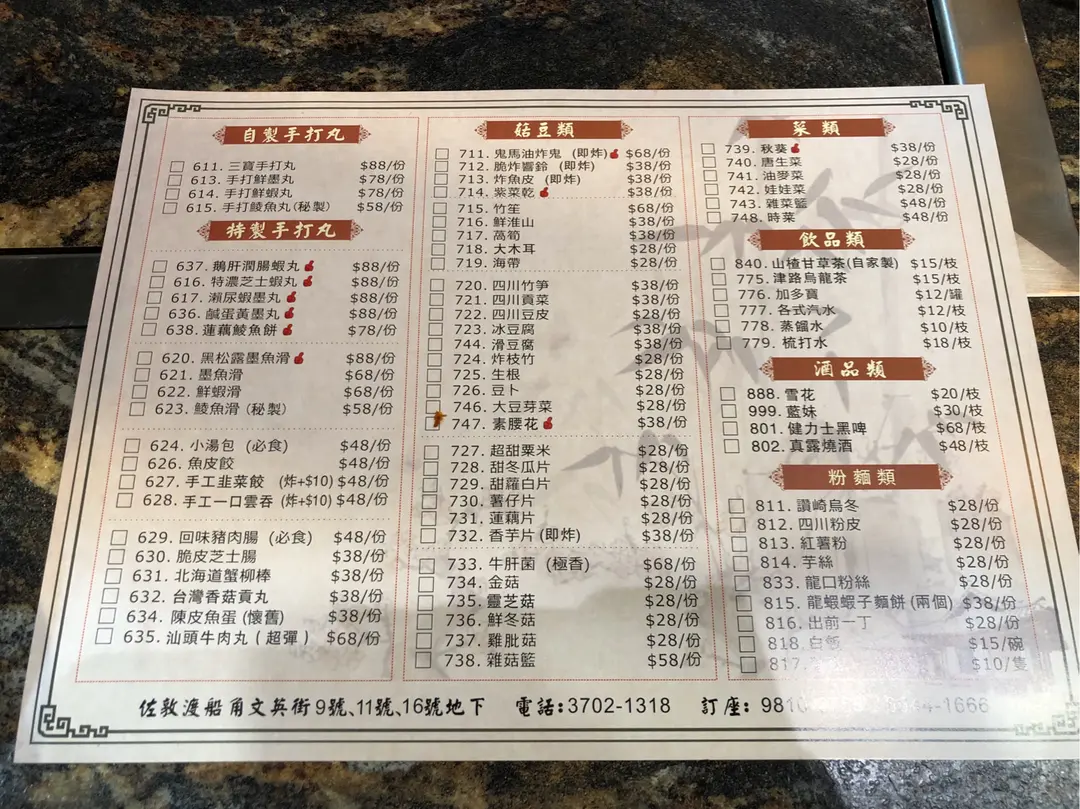 自製手打丸
611. 三寶手打丸 $88/份
613. 手打鮮墨丸 $78/份
614. 手打鮮蝦丸 $78/份
615. 手打鯪魚丸(秘製) $58/份
特製手打丸
637. 鵝肝潤腸蝦丸 $88/份
616. 特濃芝士蝦丸 $88/份
617. 瀨尿蝦墨丸 $88/份
636. 鹹蛋黃墨丸 $88/份
638. 蓮藕鯪魚餅 $78/份
620. 黑松露墨魚滑 $88/份
621. 墨魚滑 $68/份
622. 鮮蝦滑 $68/份
623. 鯪魚滑(秘製) $58/份
624. 小湯包 (必食) $48/份
626. 魚皮餃 $48/份
627. 手工韭菜餃 (炸+$10) $48/份
628. 手工一口雲吞 (炸+$10) $48/份
629. 回味豬肉腸 (必食) $48/份
630. 脆皮芝士腸 $38/份
631. 北海道蟹柳棒 $38/份
632. 台灣香菇貢丸 $38/份
634. 陳皮魚蛋(懷舊) $38/份
635. 汕頭牛肉丸 (超彈) $68/份
菇豆類
711. 鬼馬油炸鬼 (即炸) $68/份
712. 脆炸響鈴 (即炸) $38/份
713. 炸魚皮 (即炸) $38/份
714. 紫菜乾 $38/份
715. 竹笙 $68/份
716. 鮮淮山 $38/份
717. 高筍 $38/份
718. 大木耳 $28/份
719. 海帶 $28/份
720. 四川竹筍 $38/份
721. 四川貢菜 $38/份
722. 四川豆皮 $28/份
723. 冰豆腐 $38/份
744. 滑豆腐 $38/份
724. 炸枝竹 $28/份
725. 生根 $28/份
726. 豆卜 $28/份
746. 大豆芽菜 $28/份
747. 素腰花 $38/份
727. 超甜粟米 $28/份
728. 甜冬瓜片 $28/份
729. 甜蘿白片 $28/份
730. 薯仔片 $28/份
731. 蓮藕片 $28/份
732. 香芋片(即炸) $38/份
733. 牛肝菌 (極香) $68/份
734. 金菇 $28/份
735. 靈芝菇 $28/份
736. 鮮冬菇 $28/份
737. 雞肶菇 $28/份
738. 雜菇籃 $58/份
菜類
739. 秋葵 $38/份
740. 唐生菜 $28/份
741. 油麥菜 $28/份
742. 娃娃菜 $28/份
743. 雜菜籃 $48/份
748. 時菜 $48/份
飲品類
840. 山楂甘草茶(自家製) $15/杯
775. 津路烏龍茶 $15/杯
776. 加多寶 $12/罐
777. 各式汽水 $12/杯
778. 蒸餾水 $10/杯
779. 梳打水 $18/杯
酒品類
888. 雪花 $20/枝
999. 藍妹 $30/枝
801. 健力士黑啤 $68/枝
802. 真露燒酒 $48/枝
粉麵類
811. 讚崎烏冬 $28/份
812. 四川粉皮 $28/份
813. 紅薯粉 $28/份
814. 芋絲 $28/份
833. 龍口粉絲 $28/份
815. 龍蝦蝦子麵餅(兩個) $38/份
816. 出前一丁 $28/份
818. 白飯 $15/碗
817. $10/隻
佐敦渡船角文英街9號、11號、16號地下 電話:3702-1318 訂座: